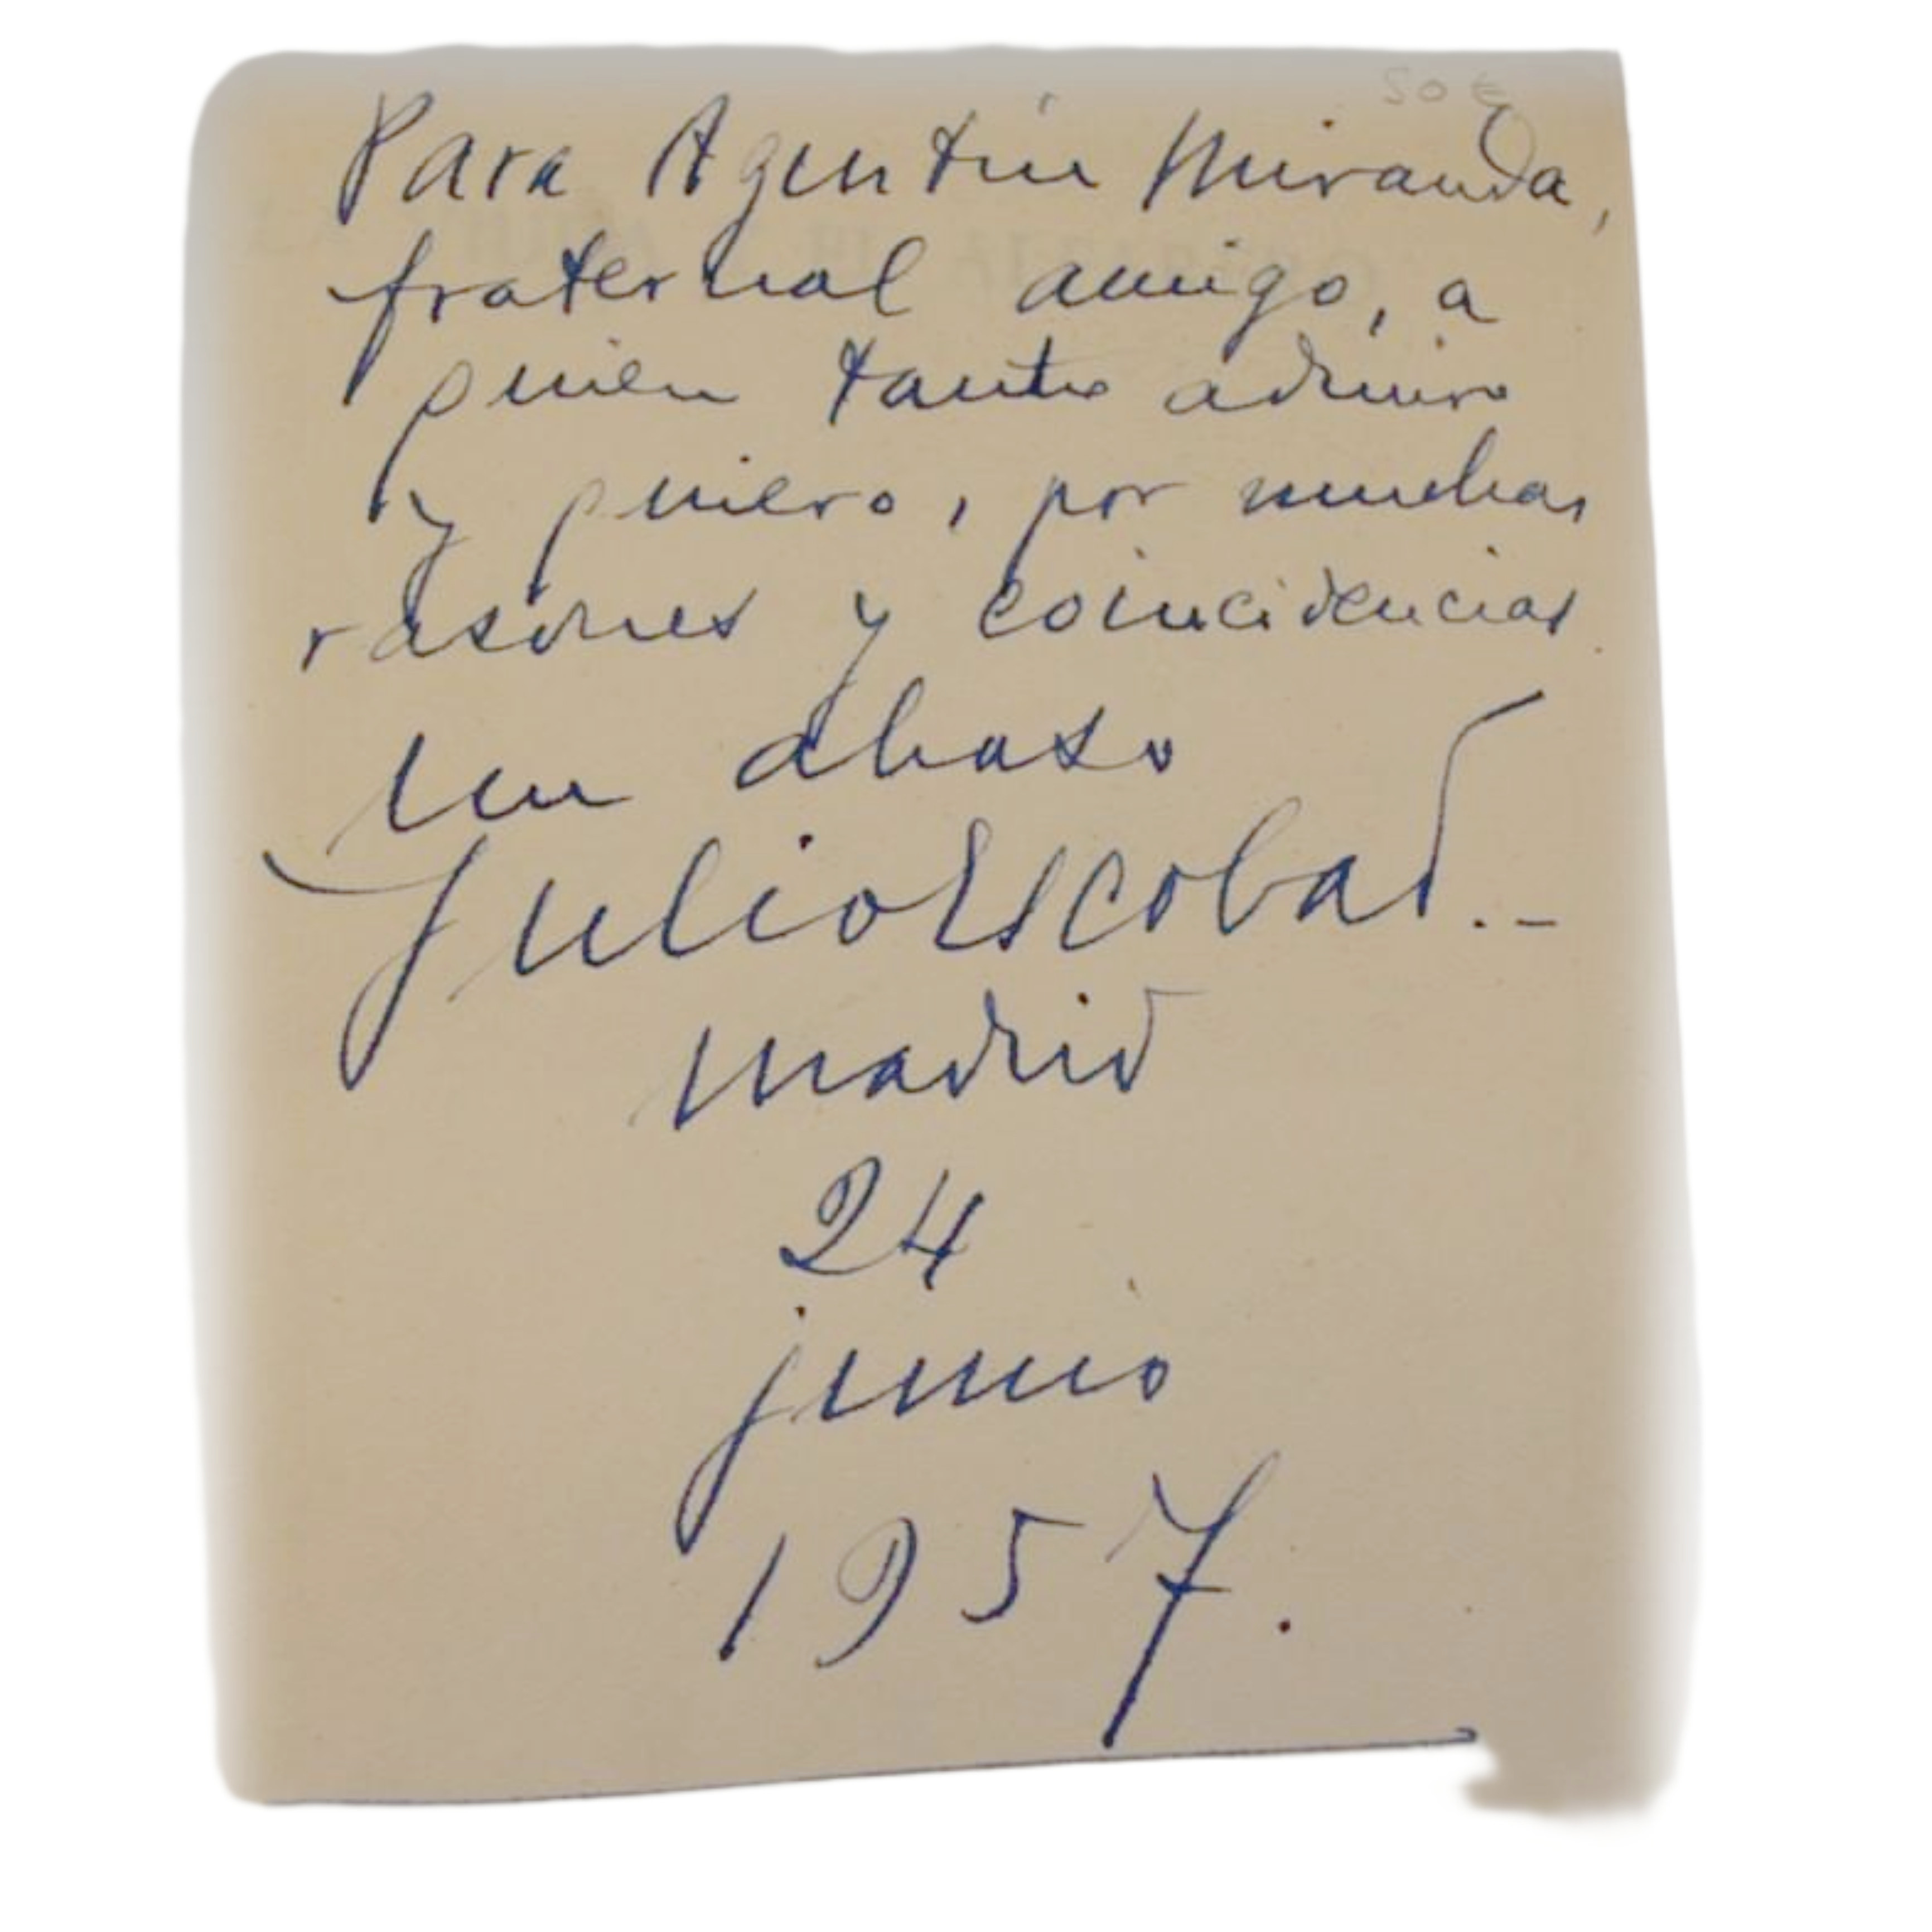 50 €
Para Agustín Miranda,
fraternal amigo, a
quien tanto admiro
y quiero, por muchas
rasones y coincidencias.
Un abraso
Julio Escobar.-
Madrid
24
junio
1957.